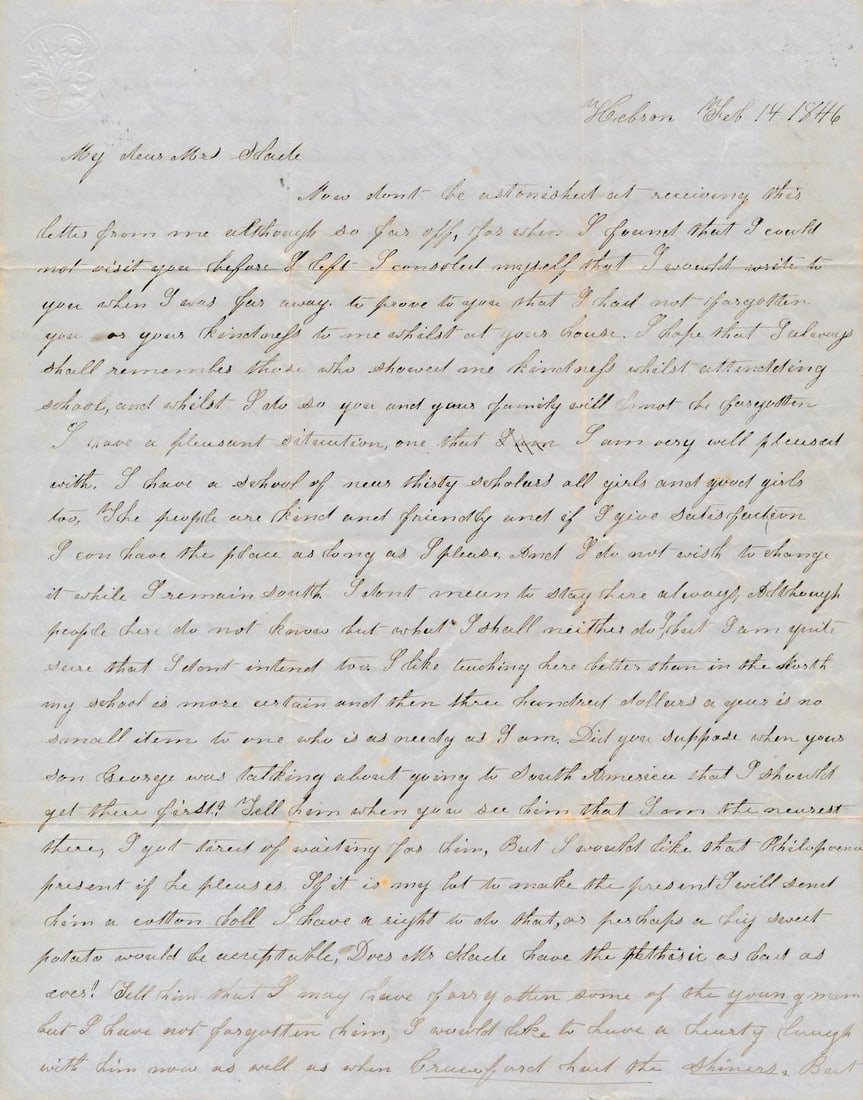 Hebron Feb 14 1846
My dear Mrs Slade
Now dont be astonished at receiving this
letter from me although so far off, for when I found that I could
not visit you before I left I consoled myself that I would write to
you when I was far away. to prove to you that I had not forgotten
you or your kindness to me whilst at your house. I hope that I always
shall remember those who showed me kindness whilst attendding
school, and whilst I do so you and your family will not be forgotten
I have a pleasant situation, one that I am I am very well pleased
with. I have a school of near thirty scholars all girls and good girls
too, The people are kind and friendly and if I give satisfaction
I can have the place as long as I please. And I do not wish to change
it while I remain south I dont mean to stay here always, Although
people here do not know but what I shall neither do I, but I am quite
sure that I dont intend too. I like teaching here better than in the North
my school is more certain and then three hundred dollars a year is no
small item to one who is as needy as I am. Did you suppose when your
son George was talking about going to South America that I should
get there first? Tell him when you see him that I am the nearest
there, I got tired of waiting for him, But I would like that Philopoena
present if he pleases. If it is my lot to make the present I will send
him a cotton boll I have a right to do that, or perhaps a big sweet
potato would be acceptable, Does Mr Slade have the phthisic as bad as
ever? Tell him that I may have forgotten some of the young men
but I have not forgotten him, I would like to have a hearty laugh
with him now as well as when Crawford had the shiners. But